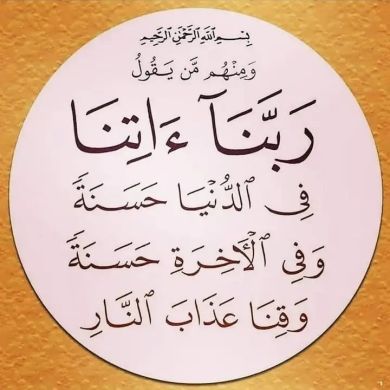 بِسْمِ ٱللَّهِ ٱلرَّحْمَٰنِ ٱلرَّحِيمِ
وَمِنْهُم مَّن يَقُولُ
رَبَّنَآ ءَاتِنَا
فِى ٱلدُّنْيَا حَسَنَةً
وَفِى ٱلْأَخِرَةِ حَسَنَةً
وَقِنَا عَذَابَ ٱلنَّارِ